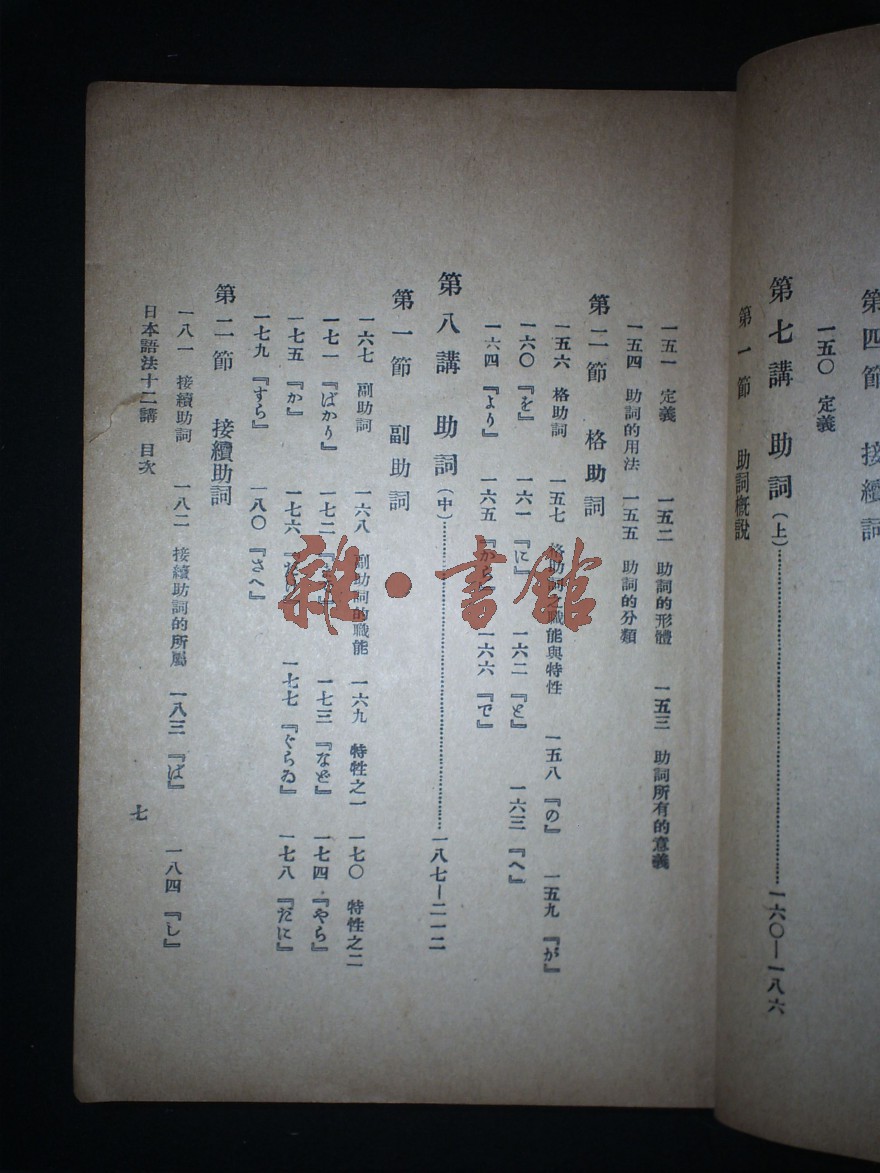 第四節　接續詞
一五〇　定義
第七講　助詞（上）……一六〇—一八六
第一節　助詞概說
一五一　定義　一五二　助詞的形體　一五三　助詞所有的意義
一五四　助詞的用法　一五五　助詞的分類
第二節　格助詞
一五六　格助詞　一五七　格助詞之職能與特性　一五八『の』　一五九『が』
一六〇『を』　一六一『に』　一六二『と』　一六三『へ』
一六四『より』　一六五『から』　一六六『で』
第八講　助詞（中）……一八七—二一二
第一節　副助詞
一六七　副助詞　一六八　副助詞的職能　一六九　特性之一　一七〇　特性之二
一七一『ばかり』　一七二　一七三『など』　一七四『やら』
一七五『か』　一七六『だけ』　一七七『ぐらゐ』　一七八『だに』
一七九『すら』　一八〇『さへ』
第二節　接續助詞
一八一　接續助詞　一八二　接續助詞的所屬　一八三『ば』　一八四『し』
日本語法十二講　目次
七
雜·書館